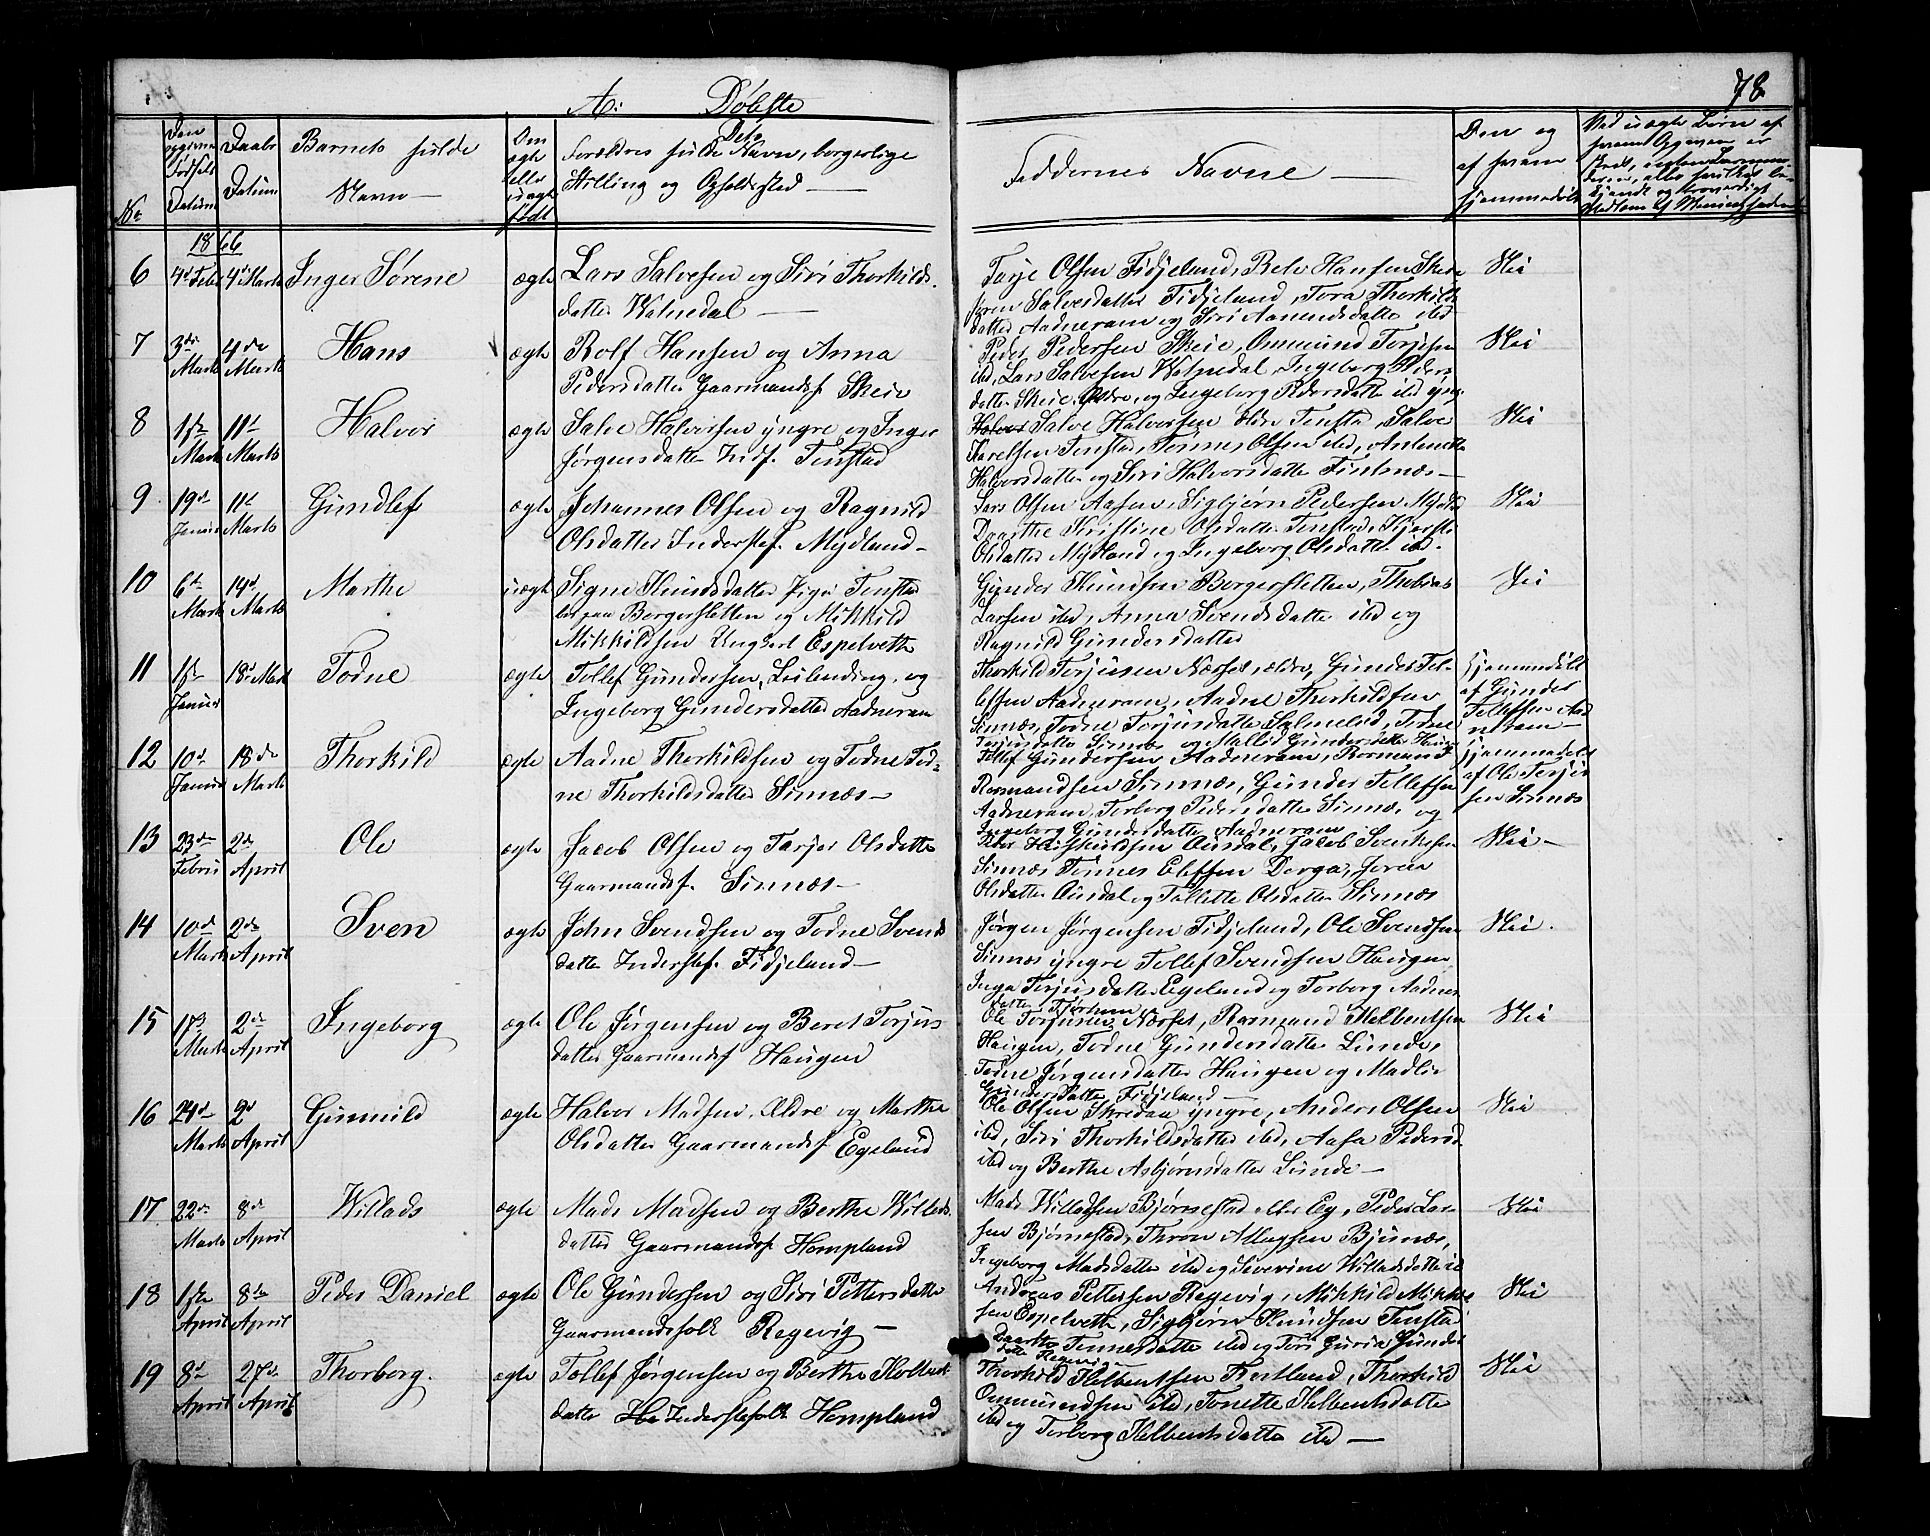 78
A: Døbste
No
Den opgivne Fødsels Datum
Daabs Datum
Barnets fulde Navn
Om ægte eller uægte født
Forældres fulde Navn, borgerlige
Stilling og Opholdssted
Faddernes Navne
Om og af hvem hjemmedøbt
1866
6 4de Febr 4de Marts Inger Sørene ægte Lars Salvesen og Siri Thorkilds-
datter Walnedal
Tarje Olsen Fidjeland, Rolv Hansen Skeie
Joren Salvesdatter Fidjeland, Tora Thorkilds
datter Aadneram og Siri Aanendsdatter ibd
Nei
7 3die Marts 4de Marts Hans ægte Rolf Hansen og Anna
Pedersdatter Gaarmandsf Skeie
Peder Pedersen Skeie, Ommund Torjesen
ibd, Lars Salvesen Walnedal, Ingeborg Peders
datter Skeie ældre, og Ingeborg Pedersdatter ibd yng.
Nei
8 1ste Marts 11te Marts Halvor ægte Salve Halvorsen yngre og Inger
Jørgensdatter Indf. Tinstad
Salve Halvorsen Tinsta, Salve
Karelsen Tinstad, Tønnes Olsen ibd, Antonette
Halvorsdatter og Siri Halvorsdatter Fintnæs
Nei
9 19de Januar 11te Marts Gundlef ægte Johannes Olsen og Ragnild
Olsdatter Inderstef. Mydland
Lars Olsen Aasen, Sigbjørn Pedersen Mydld
Daarthe Kristine Olsdatter Tinstad, Kjersti
Olsdatter Mydland og Ingeborg Olsdatter ibd.
Nei
10 6te Marts 14de Marts Marthe uægte Signe Knudsdatter Pige Tinstad
paa Borgersletten og Mikkild
Mikkildsen Ungkarl Espelvette
Gunder Knudsen Borgersletten, Thobias
Larsen ibd, Anna Svendsdatter ibd og
Ragnild Gundersdatter
Nei
11 1ste Januar 18de Marts Todne ægte Tollef Gundersen, Leilending, og
Ingeborg Gundersdatter Aadneram
Thorkild Torjusen Næset, ældre, Gunder Tol-
lefsen Aadneram, Aadne Thorkildsen
Sinnæs, Todne Torjusdatter, Todne
Torjusdatter Sinnæs og Mallid Gundersdatter Haugen
hjemmedøbt
af Gunder
Tollefsen Aad
neram
12 10de Januar 18de Marts Thorkild ægte Aadne Thorkildsen og Todne Tod-
ne Thorkildsdatter Sinnæs
Tollef Gundersen Aadneram, Rosmund
Rosmundsen Sinnæs, Gunder Tollefsen
Aadneram, Torborg Pedersdatter Sinnæs og
Ingeborg Gundersdatter Aadneram
hjemmedøbt
af Ole Torju
sen Sinnæs
13 23de Febru 2den April Ole ægte Jacob Olsen og Tarjer Olsdatter
Gaarmandsf. Sinnæs
Ousdal, Jacob Svenkesen
Sinnæs Tønnes Elefsen Dorga, Joren
Olsdatter Ousdal og Tollette Olsdatter Sinnæs
Nei
14 10de Marts 2den April Sven ægte John Svendsen og Todne Svends
datter Inderstef. Fidjeland
Jørgen Jørgensen Fidjeland, Ole Svendsen
Sinnæs yngre Tollef Svendsen Haugen
Inga Torjusdatter Egeland og Torborg Aadnes
datter Tjørhom
Nei
15 17de Marts 2den April Ingeborg ægte Ole Jørgensen og Beret Torjus
datter Gaarmandsf Haugen
Ole Torjusen Næset, Rosmund Helbentsen
Haugen, Todne Gundersdatter Lunde,
Todne Jørgensdatter Haugen og Madli
Gundersdatter Fidjeland
Nei
16 24de Marts 2d April Gunnild ægte Halvor Madsen Ældre og Marthe
Olsdatter Gaarmandsf Egeland
Ole Olsen Skredaa yngre, Anders Olsen
ibd, Siri Thorkildsdatter ibd, Aasa Pedersd
ibd og Berthe Asbjørnsdatter Lunde
Nei
17 22de Marts 8de April Willads ægte Mads Madsen og Berthe Willads
datter Gaarmandsf Hompland
Mads Willadsen Bjørnestad eller Eg, Peder Lar-
sen Bjørnestad, Thron Atlagsen Bjunæs,
Ingeborg Madsdatter ibd og Severine Willadsdatter ibd
Nei
18 1ste April 8de April Peder Daniel ægte Ole Gundersen og Siri Pettersdatter
Gaarmandsfolk Regevig
Andreas Pettersen Regevig, Mikkild Mikkild
sen Espelvette, Sigbjørn Knudsen Tinstad
Daarthe Tønnesdatter ibd og Tori Guria Gunders
datter Regevig
Nei
19 8de April 27de April Thorborg. ægte Tollef Jørgensen og Berthe Holbents
datter Inderstefolk Hompland
Thorkild Helbentsen Kvitland, Thorkild
Ommundsen ibd, Tonette Helbentsdatter
ibd og Torborg Helbentsdatter ibd
Nei